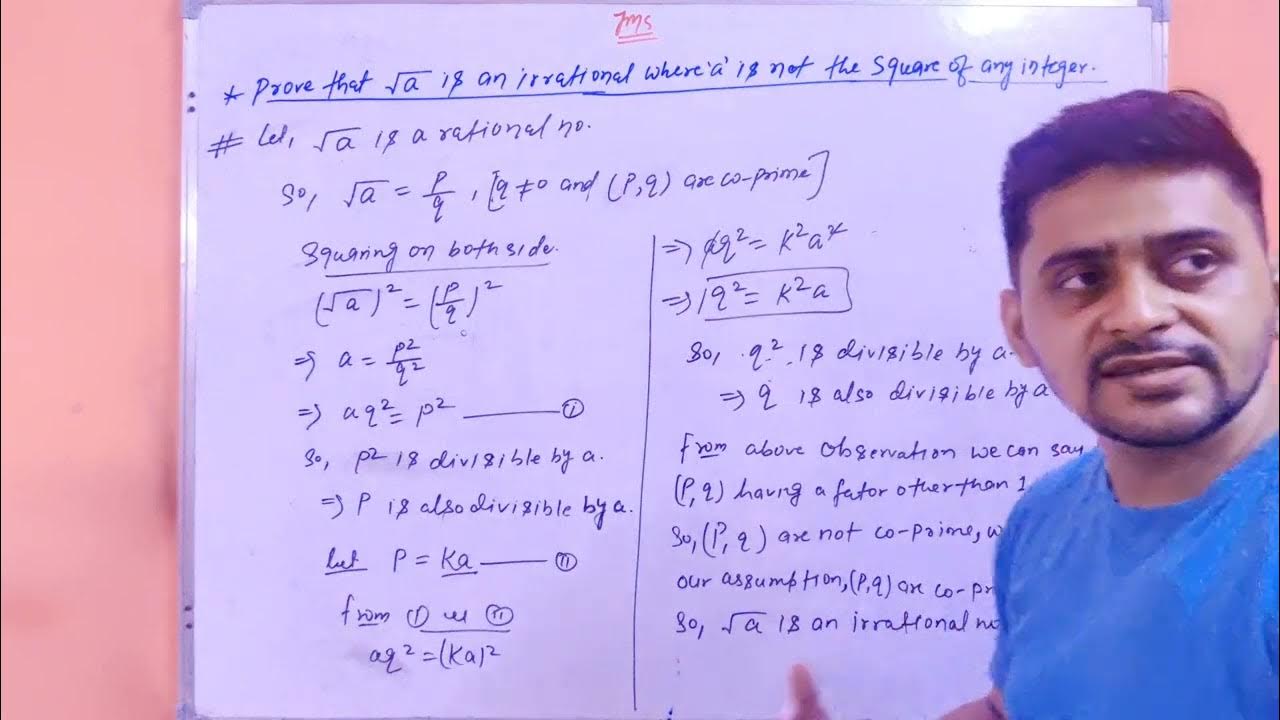 JMS
* Prove that √a is an irrational where 'a' is not the square of any integer.
# Let, √a is a rational no.
So, √a = p/q , [q ≠ 0 and (P, q) are co-prime]
Squaring on both side.
(√a)² = (p/q)²
⇒ a = p²/q²
⇒ aq² = p² —— (I)
So, p² is divisible by a.
⇒ P is also divisible by a.
let P = Ka —— (II)
from (I) & (II)
aq² = (Ka)²
⇒ aq² = K²a²
⇒ q² = K²a
So, q² is divisible by a.
⇒ q is also divisible by a
from above observation we can say
(P, q) having a fator other than 1
So, (P, q) are not co-prime, w
our assumption, (P, q) are co-pr
So, √a is an irrational no